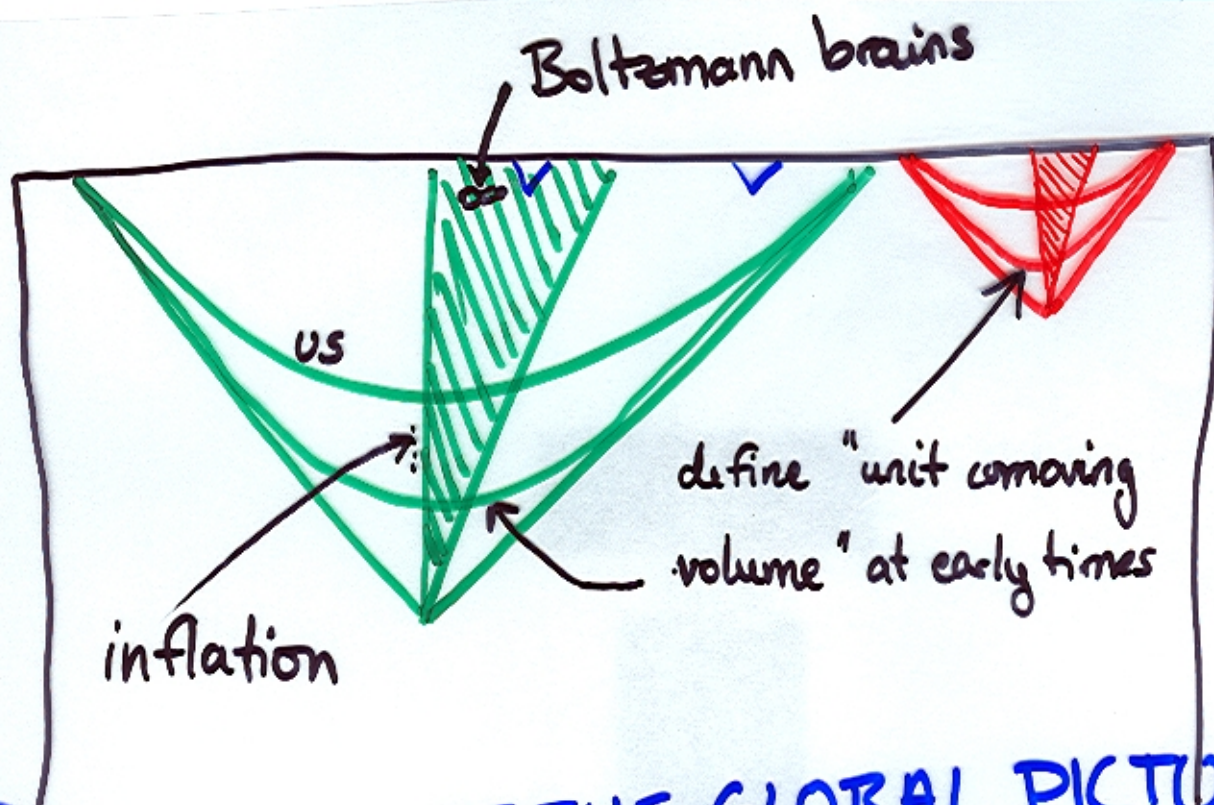 Boltzmann brains
us
define "unit comoving
volume" at early times
inflation
GLOBAL